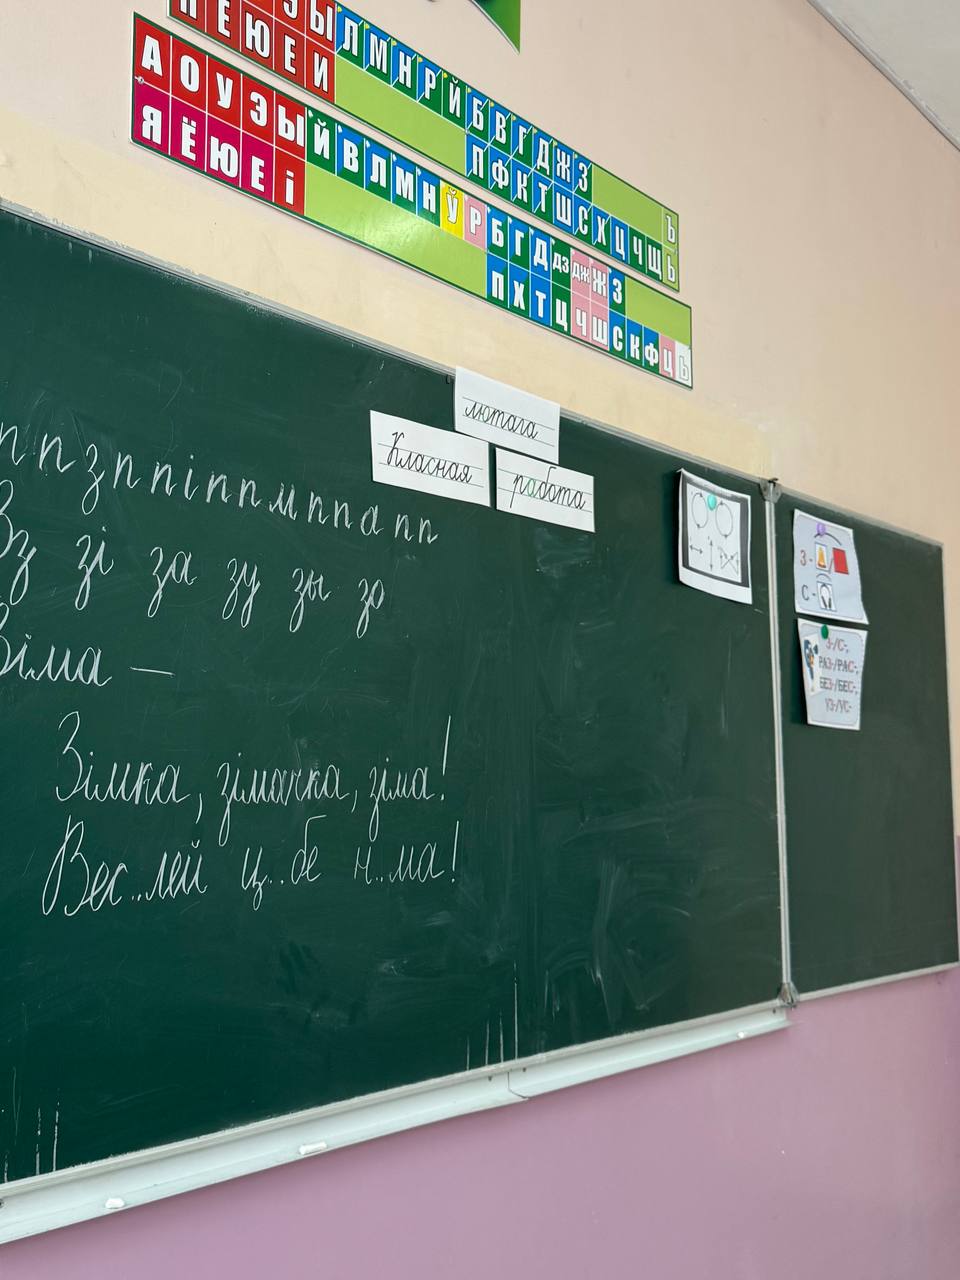 У Э Ы Л М Н Р Й Б В Г Д Ж З Ъ
Я Ё Ю Е И П Ф К Т Ш С Х Ц Ч Щ Ь
А О У Э Ы Й В Л М Н Ў Р Б Г Д ДЗ ДЖ Ж З
Я Ё Ю Е І П Х Т Ц Ч Ш С К Ф Ц Ь
лютага
Класная работа
ппзппіппмппапп
Зз зі за зу зы зо
Зіма —
Зімка, зімачка, зіма!
Вес..лей ц..бе н..ма!
З -
С -
З-/С-,
РАЗ-/РАС-,
БЕЗ-/БЕС-,
УЗ-/УС-